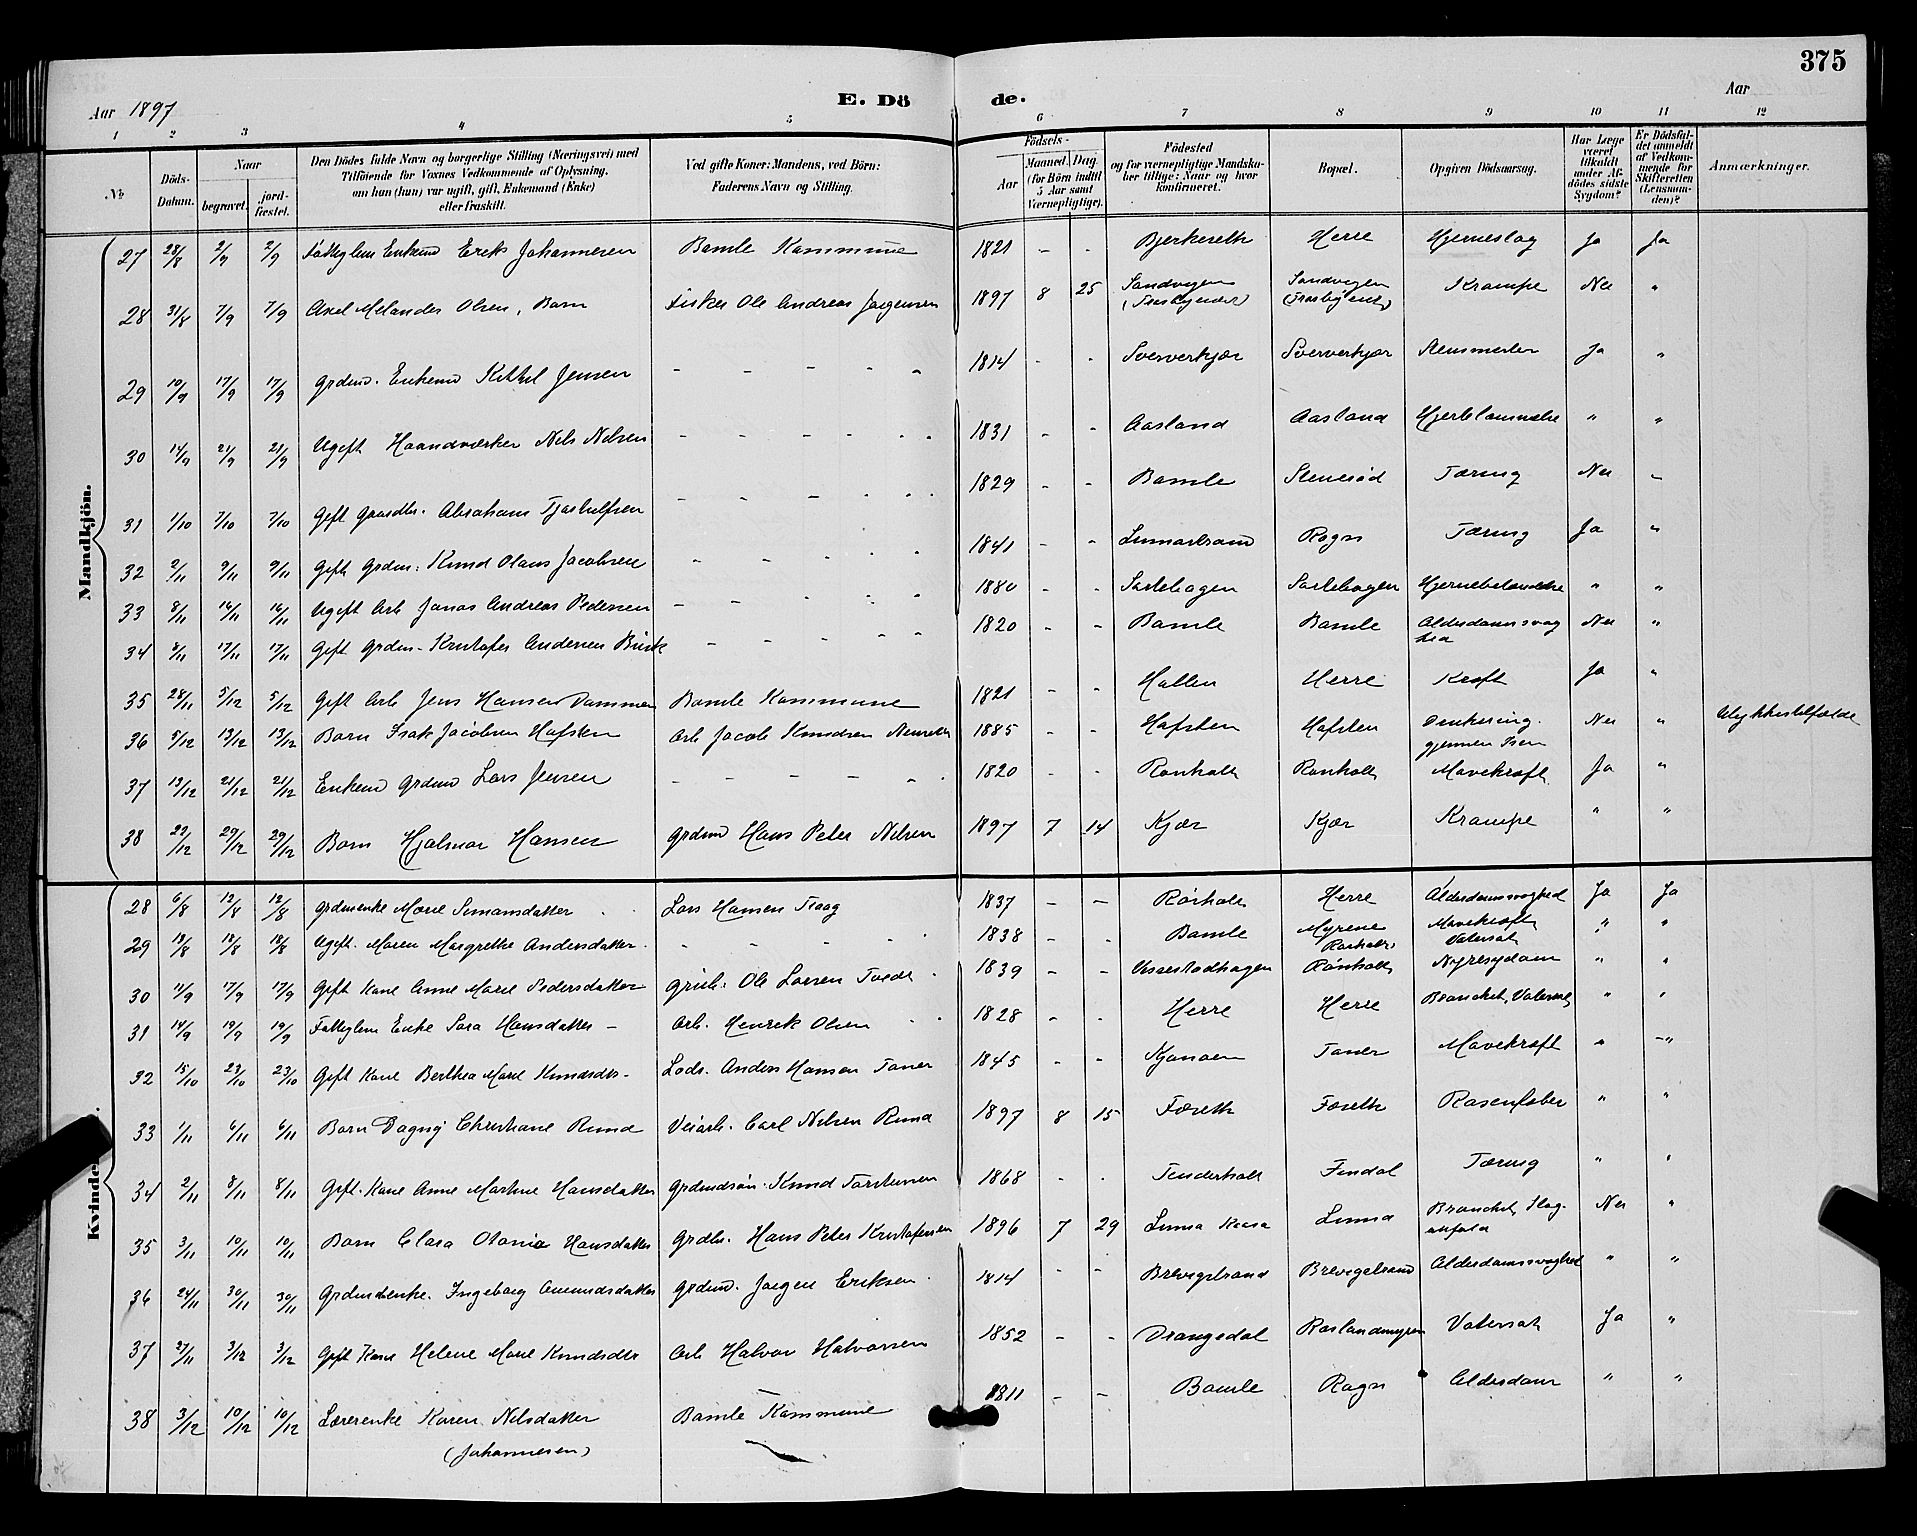 375
Aar 1897
E. Dö de.
Aar
1 2 3 4 5 6 7 8 9 10 11 12
No.
Döds-Datum.
Naar
begravet.
jord-fæstet.
Den Dödes fulde Navn og borgerlige Stilling (Næringsvei) med
Tilföiende for Voxnes Vedkommende af Oplysning,
om han (hun) var ugift, gift, Enkemand (Enke)
eller fraskilt.
Ved gifte Koner: Mandens, ved Börn:
Faderens Navn og Stilling.
Födsels-
Aar
Maaned. Dag.
(for Börn indtil
5 Aar samt
Værnepligtige).
Födested
og for værnepligtige Mandska-
ber tillige: Naar og hvor
konfirmeret.
Bopæl.
Opgiven Dödsaarsag.
Har Læge
været
tilkaldt
under Af-
dödes sidste
Sygdom?
Er Dödsfal-
det anmeldt
af Vedkom-
mende for
Skifteretten
(Lensman-
den)?
Anmærkninger.
Mandkjön.
27 28/8 2/9 2/9 Fattiglem Enkemd Erik Johannesen Bamle Kommune 1821 - - Bjerkeseth Herre Hjerneslag Ja Ja
28 31/8 7/9 7/9 Axel Melander Olsen, Barn Fisker Ole Andreas Jørgensen 1897 8 25 Sandvigen Sandvigen Krampe Nei "
29 10/9 17/9 17/9 Grdmd. Enkemd Kittil Jensen - - - - - 1814 - - Ja "
30 14/9 21/9 21/9 Ugift Haandværker Nils Nilsen - - - - - - 1831 - - Aasland Aasland Hjertelammelse " "
31 1/10 7/10 7/10 Gift Abraham - - - - - - 1829 - - Bamle Stenerød Tæring Nei "
32 2/11 9/11 9/11 Gift Grdm. Knud Olaus Jacobsen - - - - 1841 - - Rogn Tæring Ja "
33 8/11 16/11 16/11 Ugift Arb Jonas Andreas Pedersen - - - - - 1880 - - Hjernebetændelse " "
34 8/11 17/11 17/11 Gift Grdm. Kristofer Andersen - - - - 1820 - - Bamle Bamle Alderdomssvag
hed Nei "
35 28/11 5/12 5/12 Gift Arb Jens Hansen Dammen Bamle Kommune 1821 - - Hallen Herre Kræft Ja "
36 5/12 13/12 13/12 Barn Isak Jacobsen Hafsten Arb Jacob Knudsen 1885 - - Hafsten Hafsten Drukning
gjennem Isen Nei " Ulykkestilfælde
37 13/12 21/12 21/12 Enkemd Grdmd Lars Jensen - - - - - - 1820 - - Rønholt Rønholt Mavekræft Ja "
38 22/12 29/12 29/12 Barn Hjalmar Hansen Grdmd Hans Peter Nilsen 1897 7 14 Kjær Kjær Krampe " "
Kvindekjön.
28 6/8 12/8 12/8 Grdmenke Marie Simonsdatter Lars Hansen Traag 1837 - - Rørholt Herre Alderdomssvaghed Ja Ja
29 13/8 18/8 18/8 Ugift. Maren Margrethe Andersdatter. - - - - 1838 - - Bamle Myrene
Rørholt Mavekræft
Vatersot " "
30 11/9 17/9 17/9 Gift Kone Anne Marie Pedersdatter Ole Larsen Tvedt 1839 - - Vissestadhagen Rønholt Nyresygdom " "
31 14/9 19/9 19/9 Fattiglem Enke Sara Hansdatter - Arb. Henrik Olsen 1828 - - Herre Herre Bronchit, Vatersot " "
32 15/10 23/10 23/10 Gift Kone Berthea Marie Knudsdtr - Lods. Anders Hansen Toner 1845 - - Toner Mavekræft " "
33 1/11 6/11 6/11 Barn Dagny Christiane Carl Nilsen 1897 8 15 Foseth Foseth Rosenfeber " "
34 2/11 8/11 8/11 Gift. Kone Anne Martine Hansdatter Grdmdsøn. Knud Torstensen 1868 - - Findal Tæring " "
35 3/11 10/11 10/11 Barn Clara Otonia Hansdatter Grdbr. Hans Peter Kristofersen 1896 7 29 Bronchit, Slag-
anfald Nei "
36 24/11 30/11 30/11 Grdmdenke. Ingeborg Amundsdatter Grdmd. Jørgen Eriksen 1814 - - Brevigstrand Brevigstrand Alderdomssvaghed " "
37 27/11 3/12 3/12 Gift Kone Helene Marie Knudsdtr Arb Halvor Halvorsen 1852 - - Drangedal Vatersot Ja "
38 3/12 10/12 10/12 Lærerenke Karen Nilsdatter Bamle Kommune 1811 - - Bamle Rogn Alderdom " "
(Johannesen)